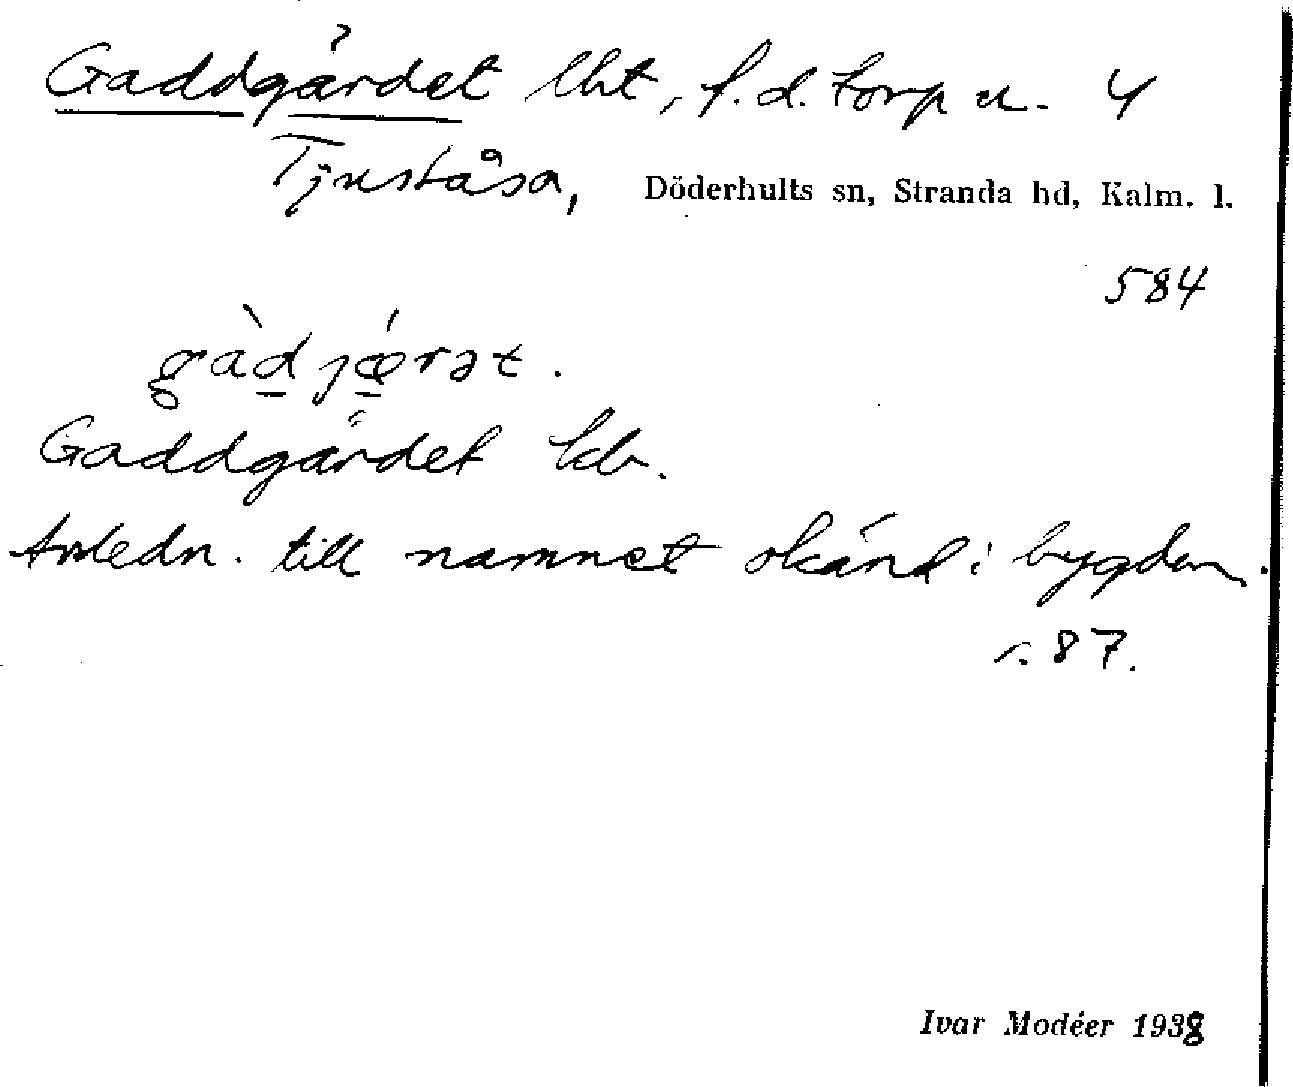 Gaddgärdet lht, f.d. torp u. 4
Tjuståsa, Döderhults sn, Stranda hd, Kalm. l.
584
gàdjǽrət.
Gaddgärdet kb.
Anledn. till namnet okänd i bygden.
s. 87.
Ivar Modéer 1938